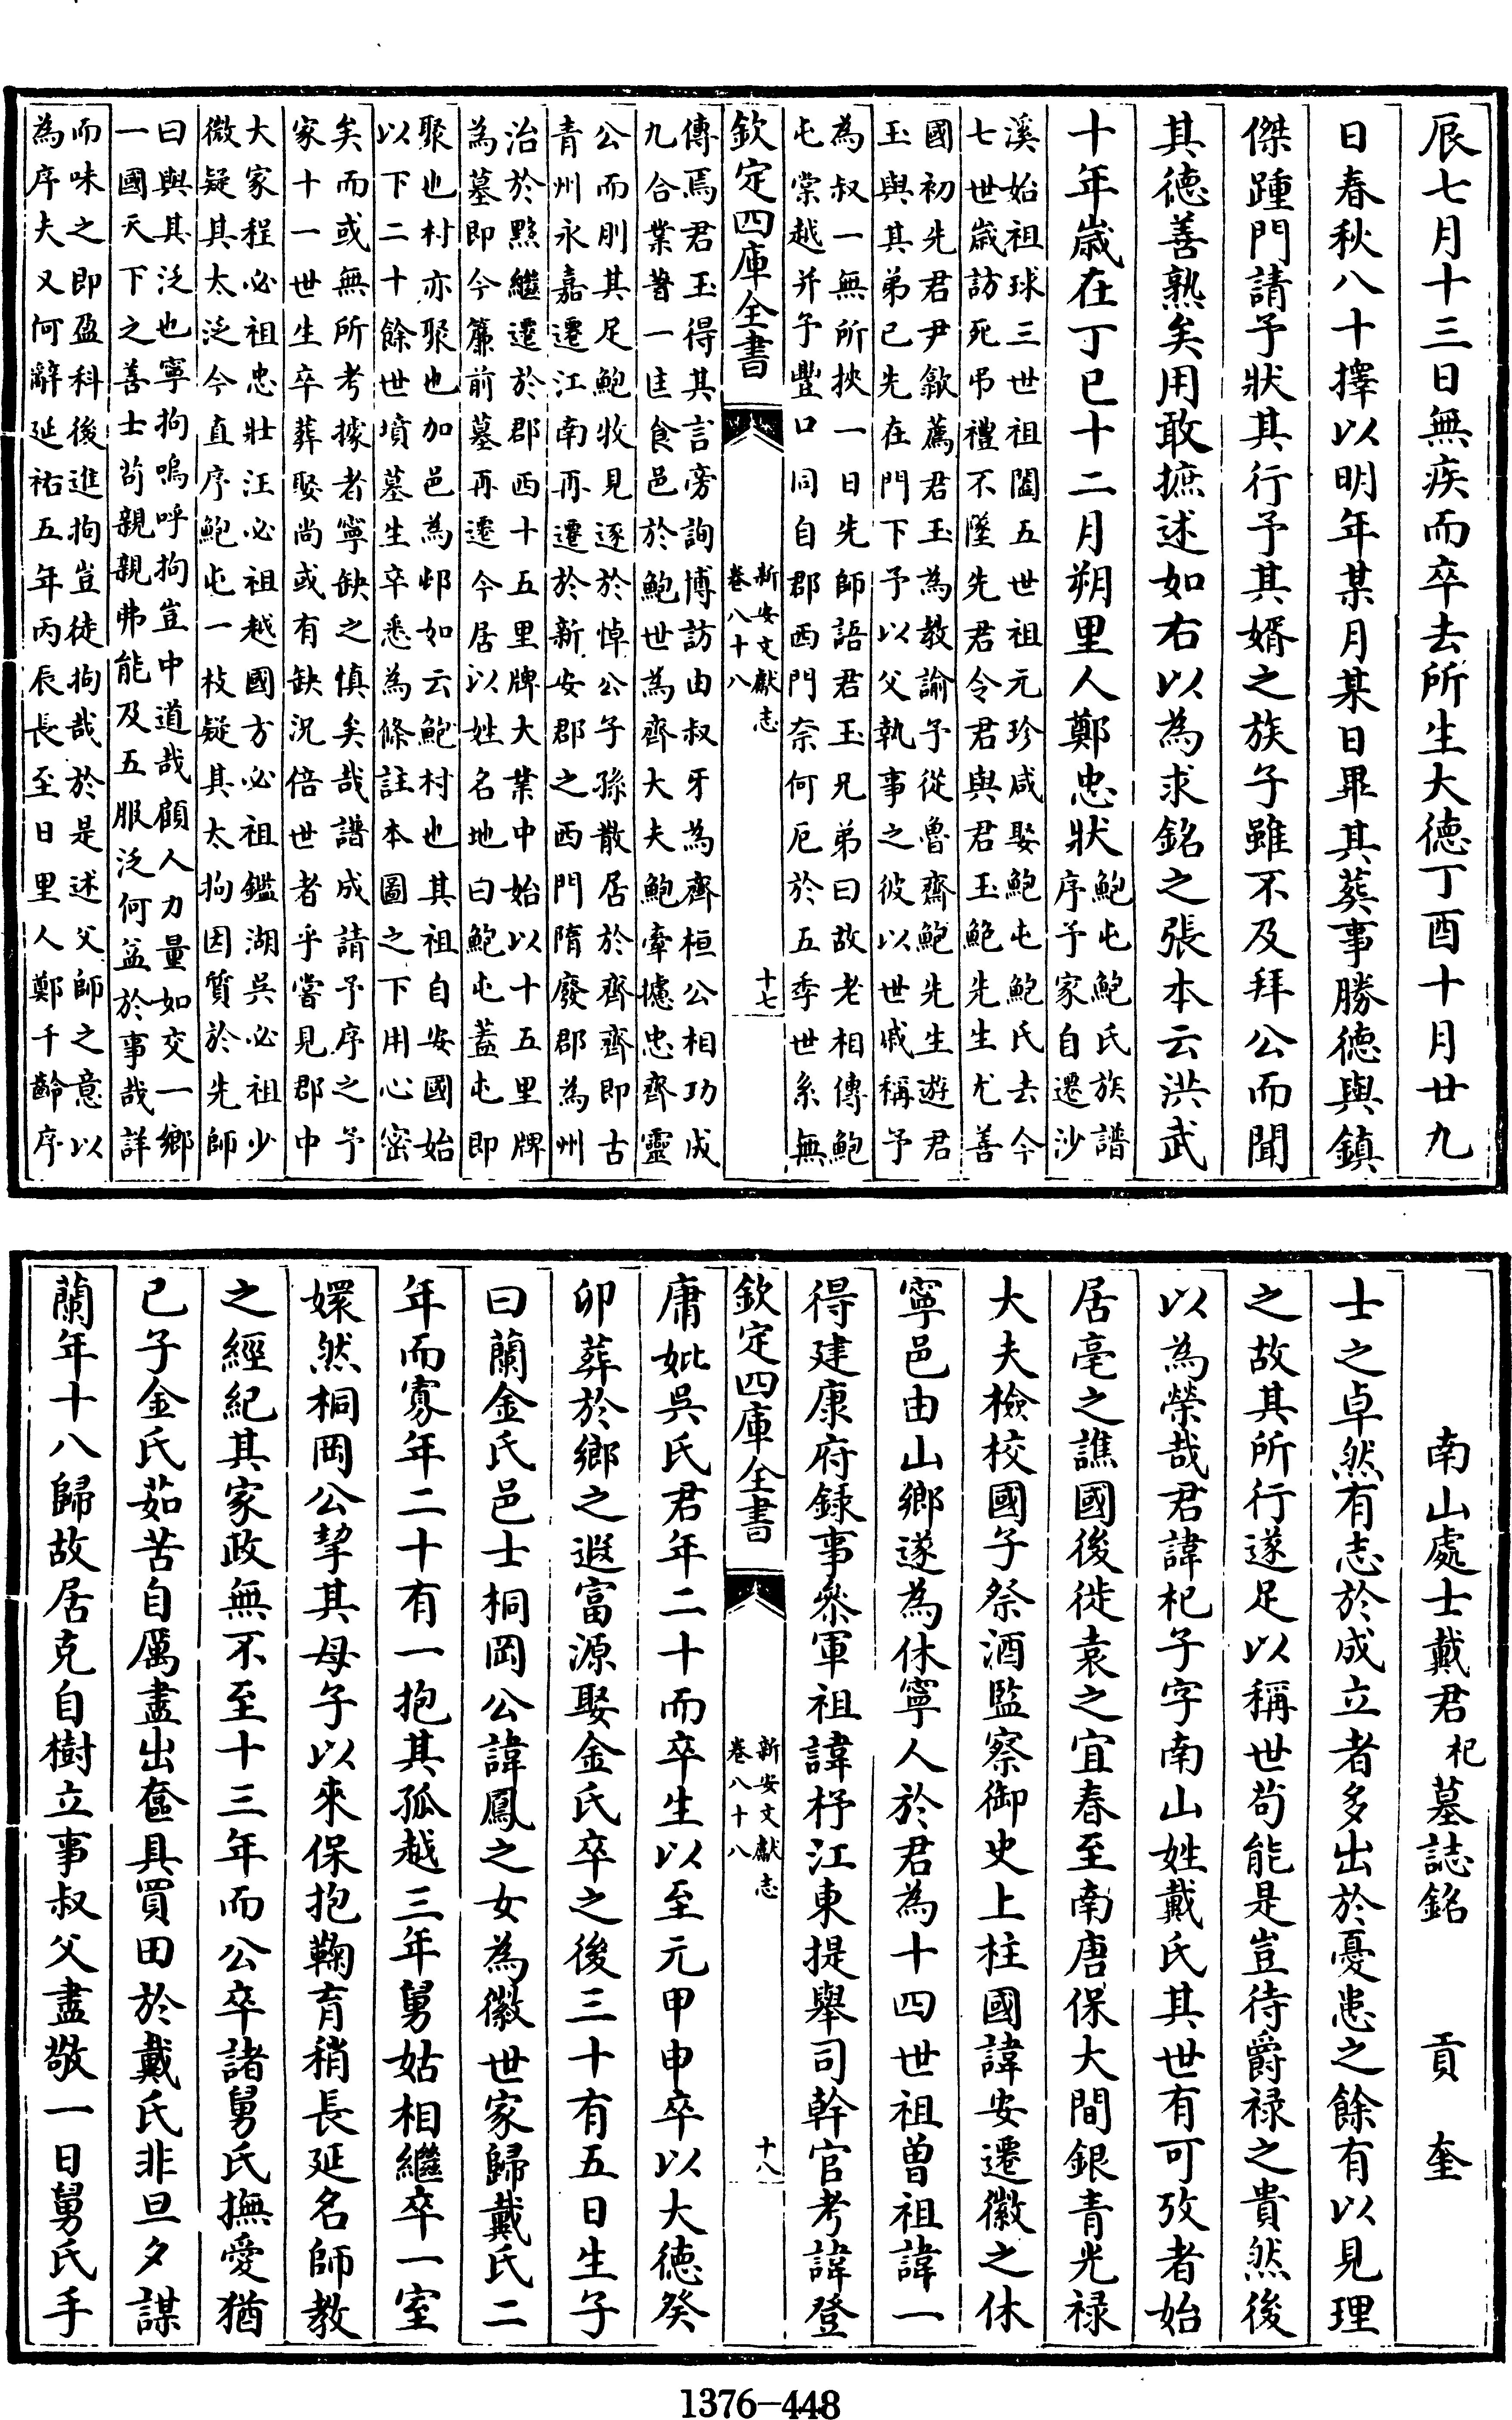 辰七月十三日無疾而卒去所生大德丁酉十月廿九
日春秋八十擇以明年某月某日畢其葬事勝德與鎮
傑踵門請予狀其行予其婿之族子雖不及拜公而聞
其德善熟矣用敢摭述如右以為求銘之張本云洪武
十年歲在丁巳十二月朔里人鄭忠狀
鮑屯鮑氏族譜
序予家自遷沙
溪始祖球三世祖閶五世祖元珍咸娶鮑屯鮑氏去今
七世歲訪死吊禮不墜先君令君與君玉鮑先生尤善
國初先君尹歙薦君玉為教諭予從魯齋鮑先生遊君
玉與其弟已先在門下予以父執事之彼以世戚稱予
為叔一無所挾一日先師語君玉兄弟曰故老相傳鮑
屯棠越并予豐口同自郡西門奈何厄於五季世系無
欽定四庫全書
新安文獻志
卷八十八
十七
傳焉君玉得其言旁詢博訪由叔牙為齊桓公相功成
九合業著一匡食邑於鮑世為齊大夫鮑牽摅忠齊靈
公而刖其足鮑牧見逐於悼公子孫散居於齊齊即古
青州永嘉遷江南再遷於新安郡之西門隋廢郡為州
治於黟繼遷於郡西十五里牌大業中始以十五里牌
為墓即今簾前墓再遷今居以姓名地曰鮑屯蓋屯即
聚也村亦聚也加邑為邨如云鮑村也其祖自安國始
以下二十餘世墳墓生卒悉為條註本圖之下用心密
矣而或無所考據者寧缺之慎矣哉譜成請予序之予
家十一世生卒葬娶尚或有缺況倍世者乎嘗見郡中
大家程必祖忠壯汪必祖越國方必祖鑑湖吳必祖少
微疑其太泛今直序鮑屯一枝疑其太拘因質於先師
曰與其泛也寧拘嗚呼拘豈中道哉顧人力量如交一鄉
一國天下之善士茍親親弗能及五服泛何益於事哉詳
而味之即盈科後進拘豈徒拘哉於是述父師之意以
為序夫又何辭延祐五年丙辰長至日里人鄭千齡序
南山處士戴君杞墓誌銘　貢奎
士之卓然有志於成立者多出於憂患之餘有以見理
之故其所行遂足以稱世茍能是豈待爵祿之貴然後
以為榮哉君諱杞子字南山姓戴氏其世有可攷者始
居亳之譙國後徙袁之宜春至南唐保大間銀青光祿
大夫檢校國子祭酒監察御史上柱國諱安遷徽之休
寧邑由山鄉遂為休寧人於君為十四世祖曾祖諱一
得建康府錄事參軍祖諱杍江東提舉司幹官考諱登
欽定四庫全書
新安文獻志
卷八十八
十八
庸妣吳氏君年二十而卒生以至元甲申卒以大德癸
卯葬於鄉之遐富源娶金氏卒之後三十有五日生子
曰蘭金氏邑士桐岡公諱鳳之女為徽世家歸戴氏二
年而寡年二十有一抱其孤越三年舅姑相繼卒一室
嬛然桐岡公挈其母子以來保抱鞠育稍長延名師教
之經紀其家政無不至十三年而公卒諸舅氏撫愛猶
已子金氏茹苦自厲盡出奩具買田於戴氏非旦夕謀
蘭年十八歸故居克自樹立事叔父盡敬一日舅氏手
1376-448